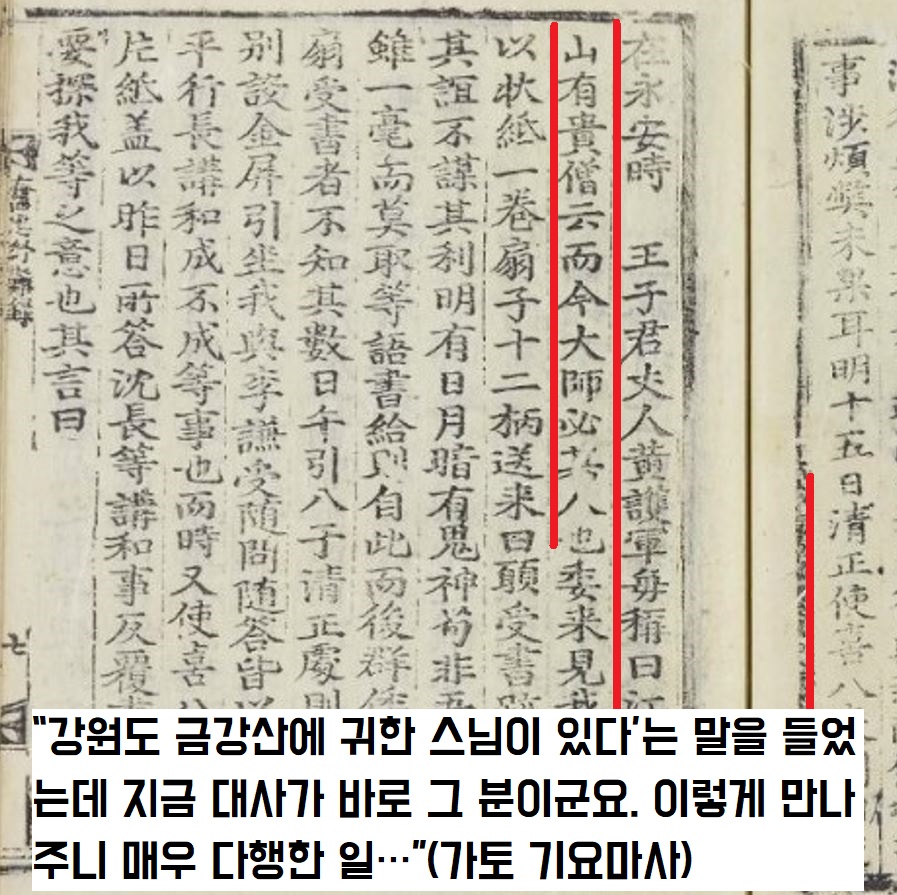 事涉煩獘未果耳明十五日清正使喜八
在永安時 王子君夫人黃護軍每稱曰江
山有貴僧云而今大師必其人也委來見我
以状紙一卷扇子十二柄送来曰願受書
其誼不謀其利明有日月暗有鬼神苟非吾
雖一毫而莫取等語書給則自此而後群倭
扇受書者不知其數日午引八于清正處則
別設金屏引坐我與李謙受随問随答皆以
平行長講和成不成等事也而時又使喜八
片紙盖以昨日所答沈長等講和事反覆
要探我等之意也其言曰
奮忠紓難錄
七
“강원도 금강산에 귀한 스님이 있다’는 말을 들었
는데 지금 대사가 바로 그 분이군요. 이렇게 만나
주니 매우 다행한 일…”(가토 기요마사)